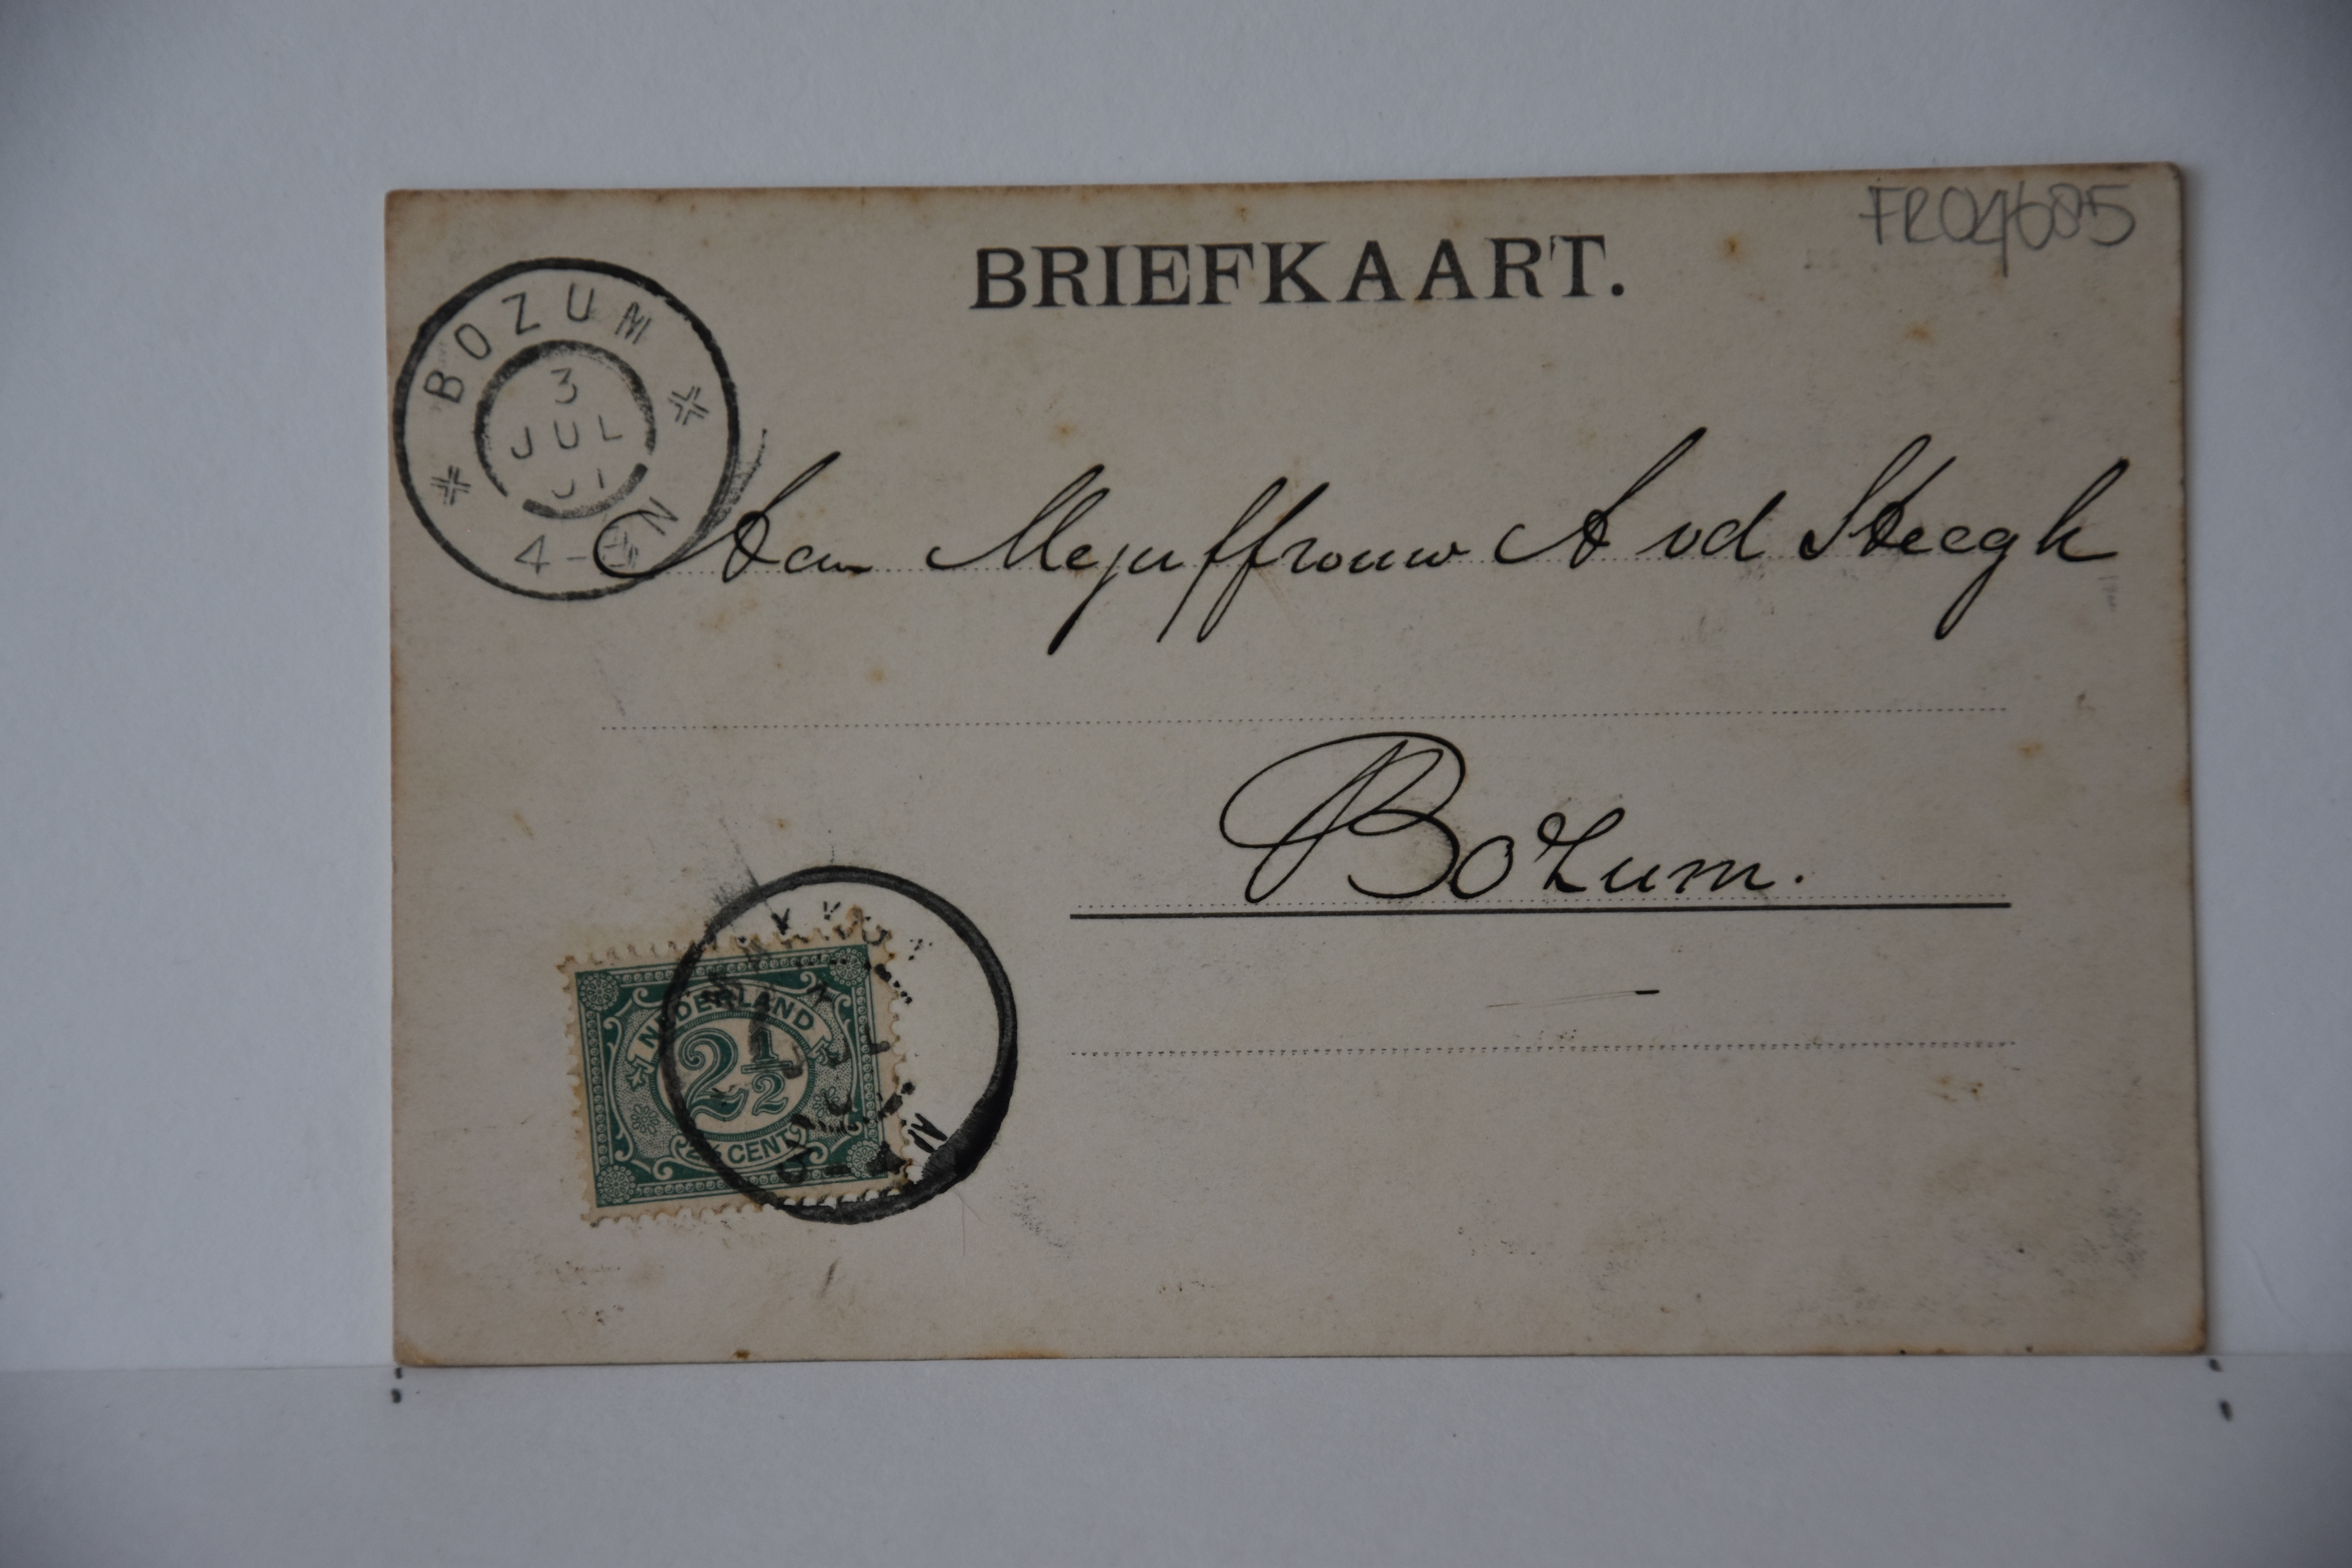 FR04685
BRIEFKAART.
BOZUM
3
JUL
01
4-
N
Aan Mejuffrouw A vd Steegh
Bozum.
NEDERLAND
2½
2½ CENT
JUL
N